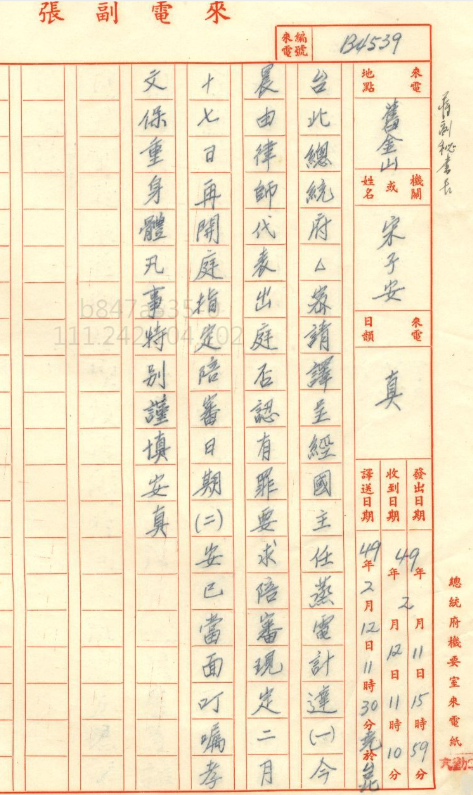 來電副張
來電編號 B4539
來電地點 舊金山
機關或姓名 宋子安
來電日韻 真
發出日期 49年2月11日15時59分
收到日期 49年2月12日11時10分
譯送日期 49年2月12日11時30分
台北總統府△密請譯呈經國主任蒸電計達(一)今
晨由律師代表出庭否認有罪要求陪審現定二月
十七日再開庭指定陪審日期(二)安已當面叮囑孝
文保重身體凡事特別謹填安真
總統府機要室來電紙